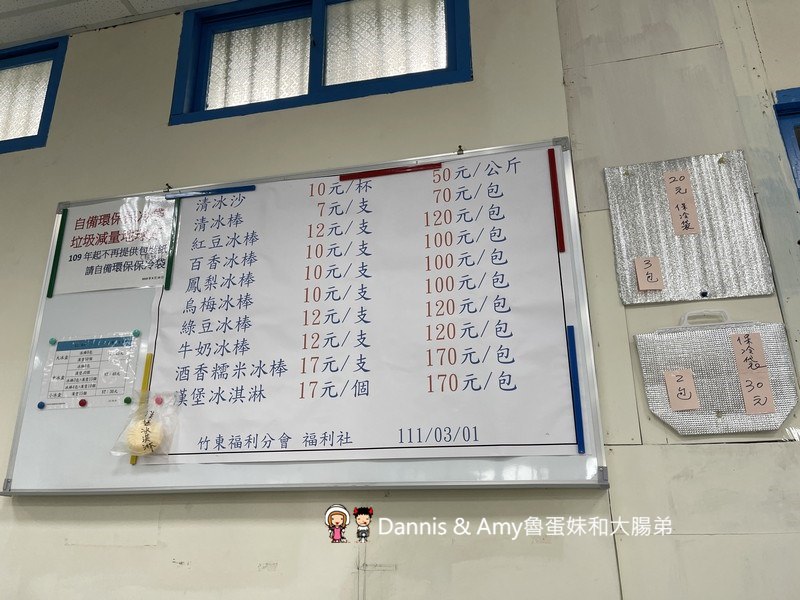 自備環保保冷袋
垃圾減量地球
109年起不再提供包
請自備環保保冷袋
清冰沙 10元/杯 50元/公斤
清冰棒 7元/支 70元/包
紅豆冰棒 12元/支 120元/包
百香冰棒 10元/支 100元/包
鳳梨冰棒 10元/支 100元/包
烏梅冰棒 10元/支 100元/包
綠豆冰棒 12元/支 120元/包
牛奶冰棒 12元/支 120元/包
酒香糯米冰棒 17元/支 170元/包
漢堡冰淇淋 17元/個 170元/包
竹東福利分會 福利社 111/03/01
20元 保冷袋
3包
保冷袋 30元
2包
Dannis & Amy魯蛋妹和大腸弟